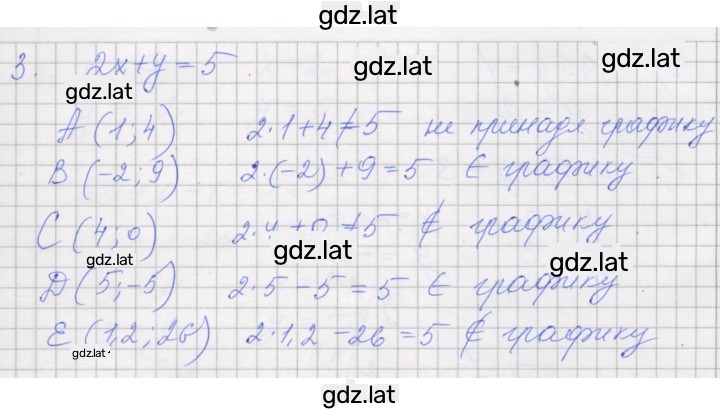 gdz.lat
3. 2x+y=5
gdz.lat
gdz.lat
gdz.lat
A (1; 4) 2·1+4≠5 не принадл. графику
B (-2; 9) 2·(-2)+9=5 ∈ графику.
C (4; 0) 2·4+0≠5 ∉ графику
gdz.lat
gdz.lat
gdz.lat
D (5; -5) 2·5-5=5 ∈ графику
E (1,2; 26) 2·1,2-26=5 ∉ графику.
gdz.lat
gdz.lat